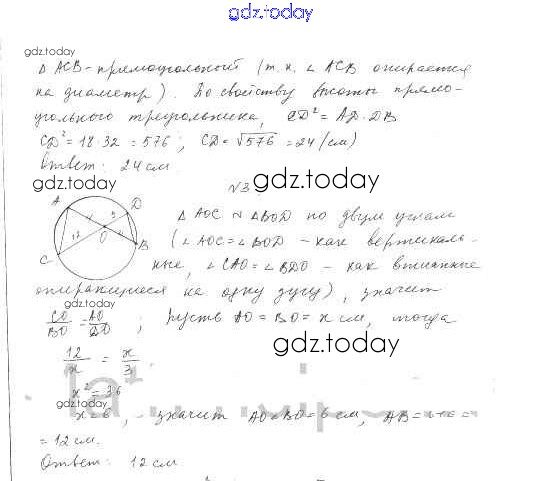 gdz.today
gdz.today
Δ ACB - прямоугольный (т.к. ∠ ACB опирается
на диаметр). По свойству высоты прямо-
угольного треугольника, CD² = AD · DB
CD² = 18 · 32 = 576 ; CD = √576 = 24 (см)
Ответ: 24 см.
gdz.today
N3
gdz.today
A
D
x
3
O
12
x
B
C
Δ AOC ~ Δ BOD по двум углам
( ∠ AOC = ∠ BOD - как вертикаль-
ные, ∠ CAO = ∠ BDO - как вписанные
опирающиеся на одну дугу), значит
gdz.today
CO/BO = AO/OD ; Пусть AO = BO = x см, тогда
12/x = x/3
gdz.today
x² = 36
gdz.today
x = 6 , значит AO = BO = 6 см, AB = 6+6 =
= 12 см.
Ответ: 12 см